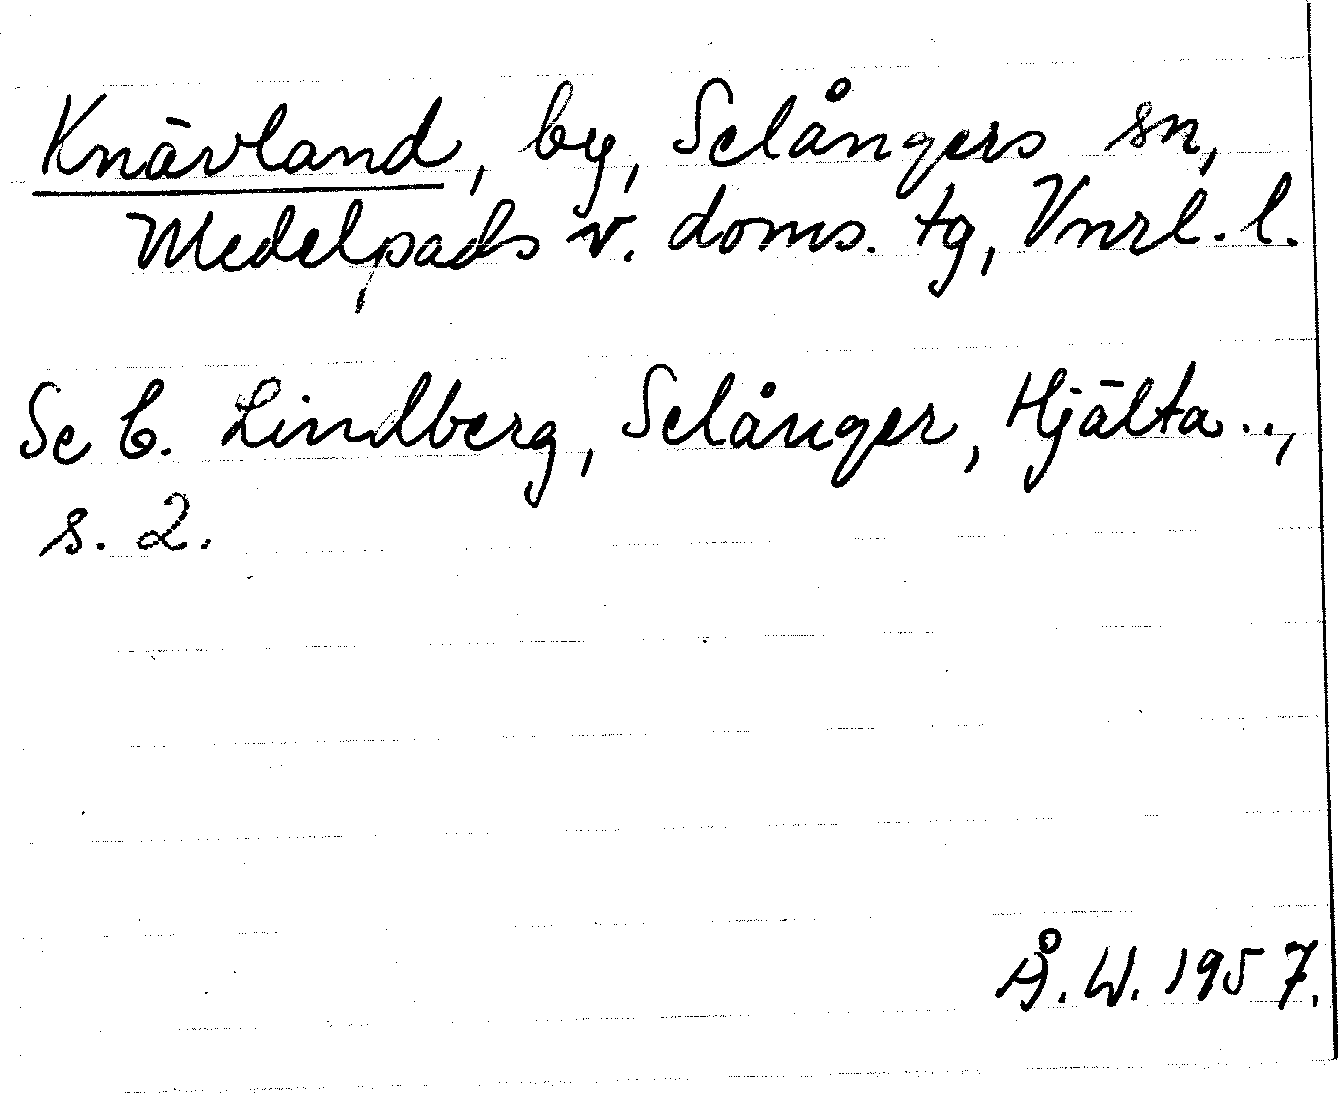 Knävland, by, Selångers sn,
Medelpads v. doms. tg, Vnrl. l.
Se C. Lindberg, Selånger, Hjälta..,
s. 2.
Å. W. 1957.